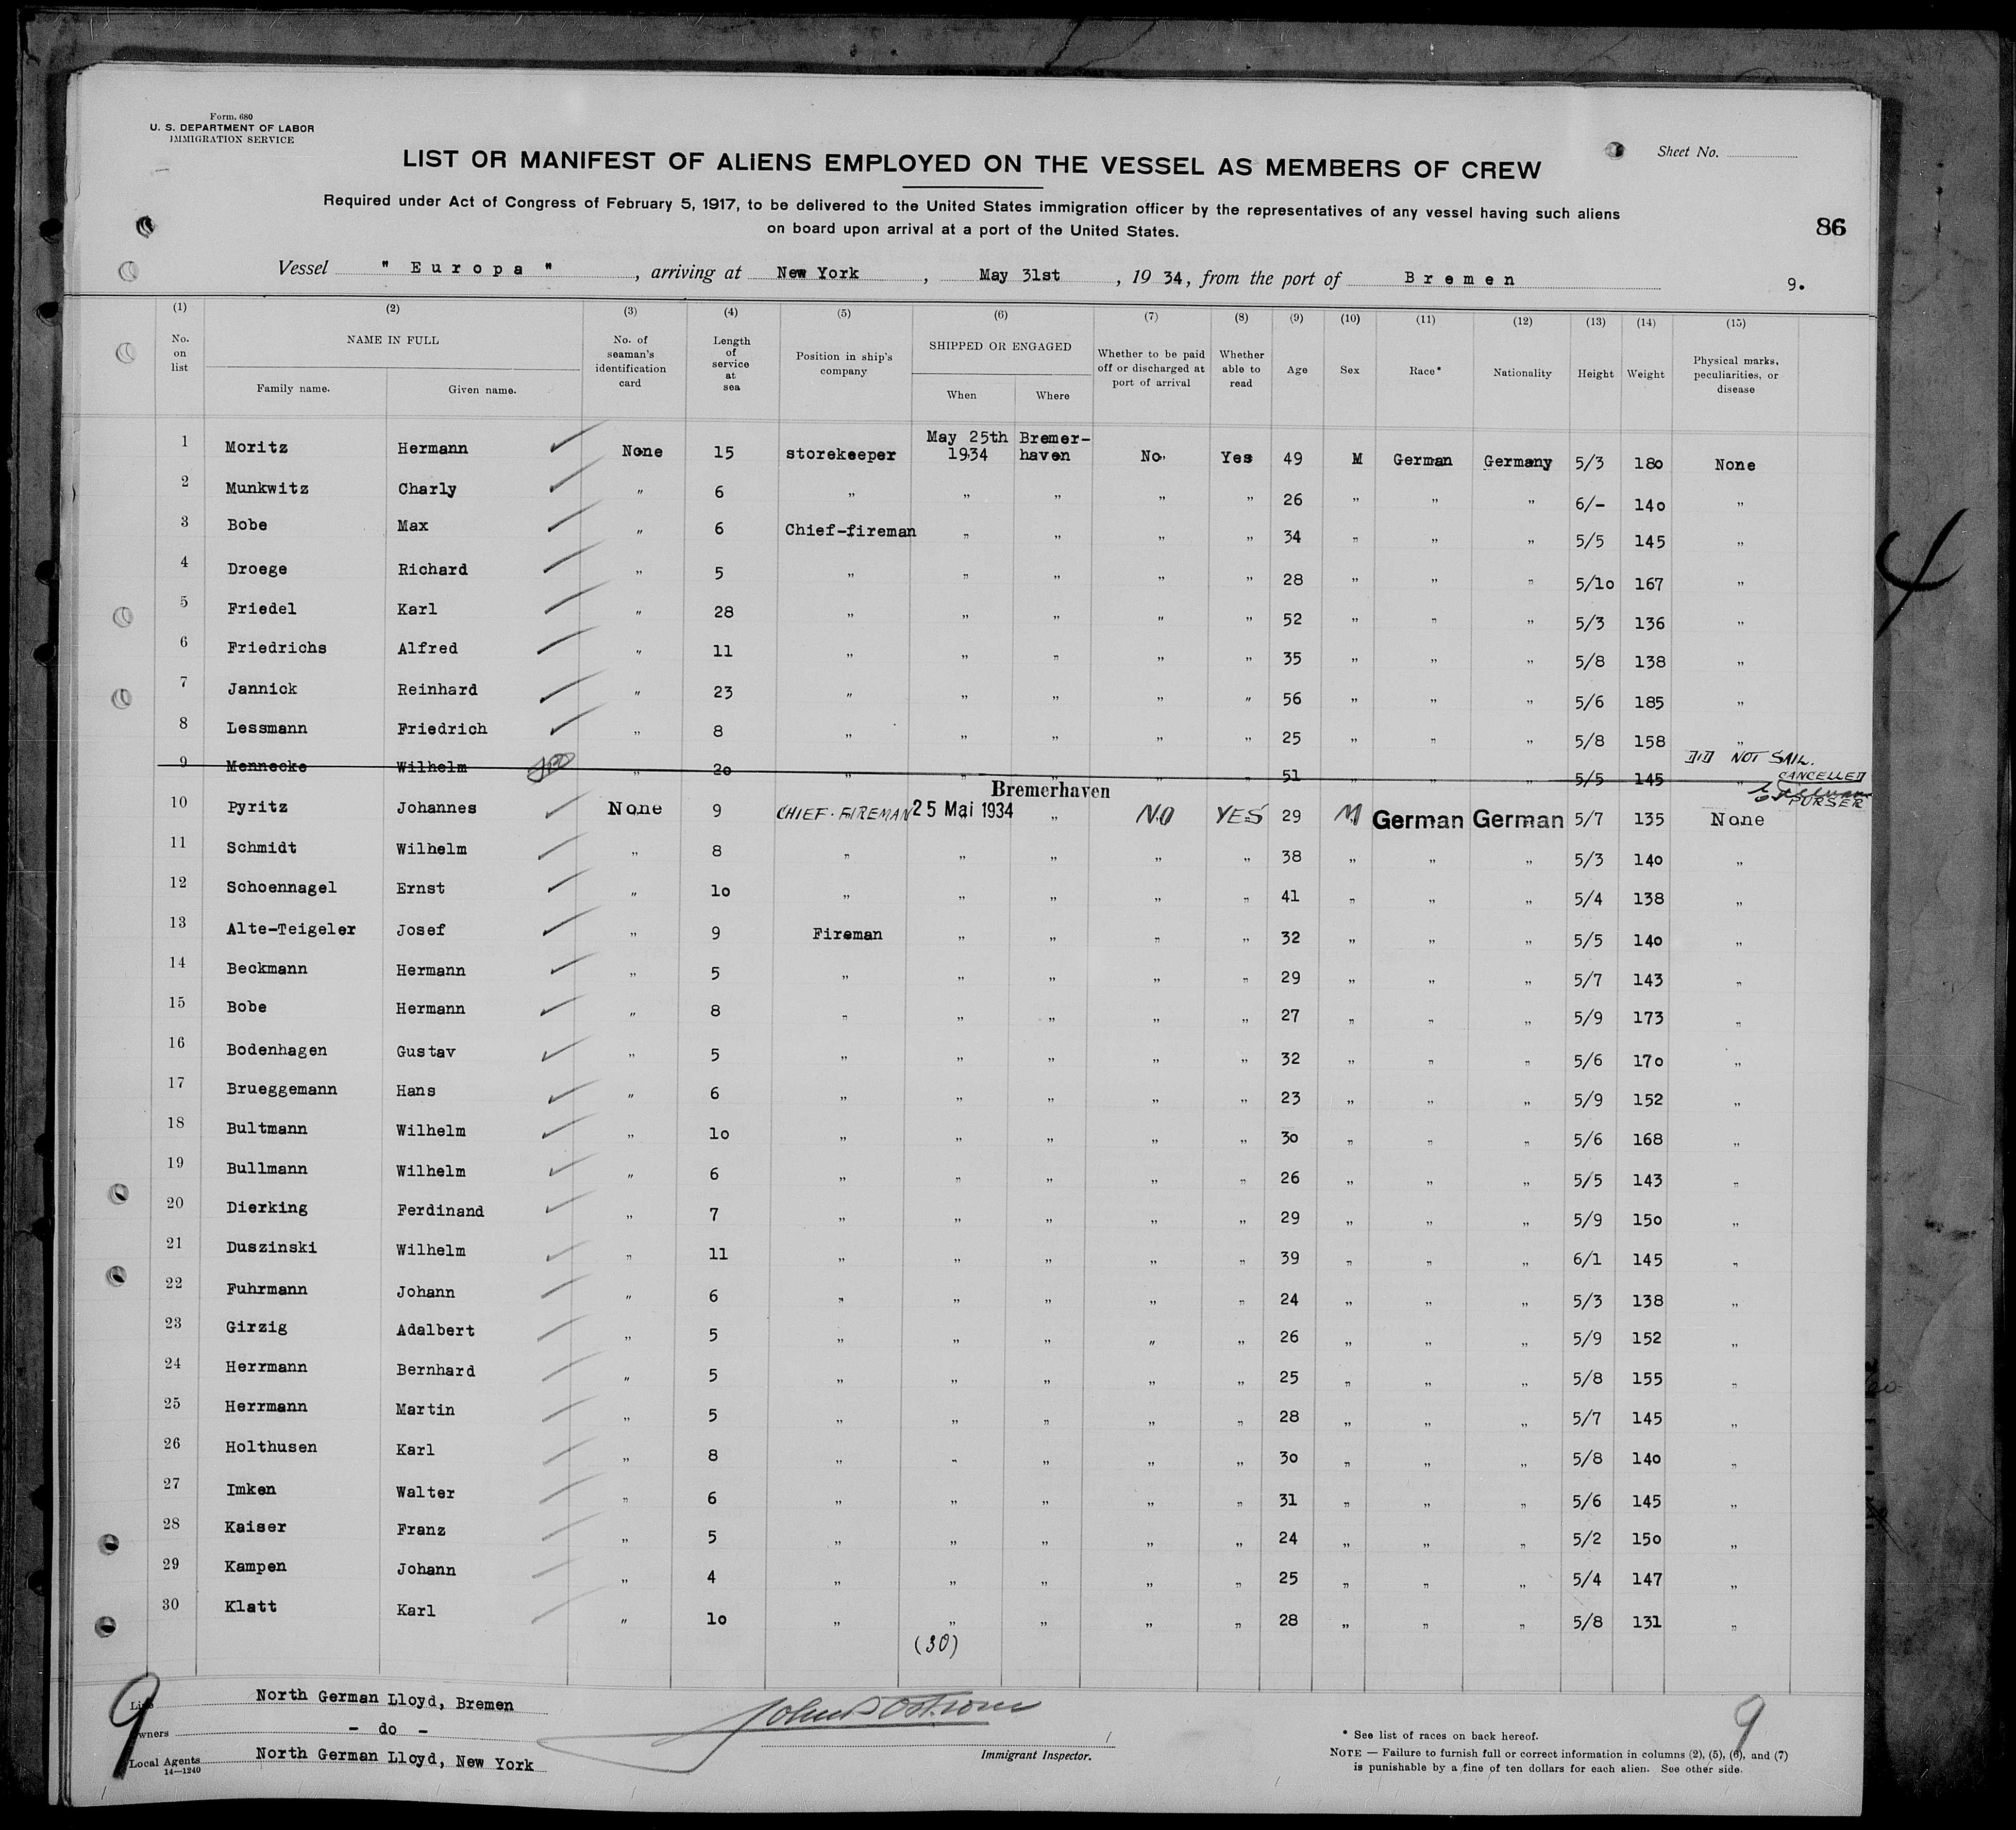 Form. 680
U. S. DEPARTMENT OF LABOR
IMMIGRATION SERVICE
Sheet No.
LIST OR MANIFEST OF ALIENS EMPLOYED ON THE VESSEL AS MEMBERS OF CREW
Required under Act of Congress of February 5, 1917, to be delivered to the United States immigration officer by the representatives of any vessel having such aliens
on board upon arrival at a port of the United States.
86
Vessel " Europa ", arriving at New York, May 31st, 1934, from the port of Bremen 9.
(1) (2) (3) (4) (5) (6) (7) (8) (9) (10) (11) (12) (13) (14) (15)
No. on list NAME IN FULL Family name. Given name. No. of seaman's identification card Length of service at sea Position in ship's company SHIPPED OR ENGAGED When Where Whether to be paid off or discharged at port of arrival Whether able to read Age Sex Race* Nationality Height Weight Physical marks, peculiarities, or disease
1 Moritz Hermann None 15 storekeeper May 25th 1934 Bremer-haven No Yes 49 M German Germany 5/3 180 None
2 Munkwitz Charly " 6 " " " " " 26 " " " 6/- 140 "
3 Bobe Max " 6 Chief-fireman " " " " 34 " " " 5/5 145 "
4 Droege Richard " 5 " " " " " 28 " " " 5/10 167 "
5 Friedel Karl " 28 " " " " " 52 " " " 5/3 136 "
6 Friedrichs Alfred " 11 " " " " " 35 " " " 5/8 138 "
7 Jannick Reinhard " 23 " " " " " 56 " " " 5/6 185 "
8 Lessmann Friedrich " 8 " " " " " 25 " " " 5/8 158 "
9 Mennecke Wilhelm " 20 " " " " " 51 " " " 5/5 145 DID NOT SAIL. CANCELLED PURSER
10 Pyritz Johannes None 9 CHIEF-FIREMAN 25 Mai 1934 Bremerhaven " NO YES 29 M German German 5/7 135 None
11 Schmidt Wilhelm " 8 " " " " " 38 " " " 5/3 140 "
12 Schoennagel Ernst " 10 " " " " " 41 " " " 5/4 138 "
13 Alte-Teigeler Josef " 9 Fireman " " " " 32 " " " 5/5 140 "
14 Beckmann Hermann " 5 " " " " " 29 " " " 5/7 143 "
15 Bobe Hermann " 8 " " " " " 27 " " " 5/9 173 "
16 Bodenhagen Gustav " 5 " " " " " 32 " " " 5/6 170 "
17 Brueggemann Hans " 6 " " " " " 23 " " " 5/9 152 "
18 Bultmann Wilhelm " 10 " " " " " 30 " " " 5/6 168 "
19 Bullmann Wilhelm " 6 " " " " " 26 " " " 5/5 143 "
20 Dierking Ferdinand " 7 " " " " " 29 " " " 5/9 150 "
21 Duszinski Wilhelm " 11 " " " " " 39 " " " 6/1 145 "
22 Fuhrmann Johann " 6 " " " " " 24 " " " 5/3 138 "
23 Girzig Adalbert " 5 " " " " " 26 " " " 5/9 152 "
24 Herrmann Bernhard " 5 " " " " " 25 " " " 5/8 155 "
25 Herrmann Martin " 5 " " " " " 28 " " " 5/7 145 "
26 Holthusen Karl " 8 " " " " " 30 " " " 5/8 140 "
27 Imken Walter " 6 " " " " " 31 " " " 5/6 145 "
28 Kaiser Franz " 5 " " " " " 24 " " " 5/2 150 "
29 Kampen Johann " 4 " " " " " 25 " " " 5/4 147 "
30 Klatt Karl " 10 " " " " " 28 " " " 5/8 131 "
(30)
4
9
Line North German Lloyd, Bremen
Owners - do -
Local Agents North German Lloyd, New York
14—1240
Immigrant Inspector.
9
* See list of races on back hereof.
NOTE — Failure to furnish full or correct information in columns (2), (5), (6), and (7)
is punishable by a fine of ten dollars for each alien. See other side.